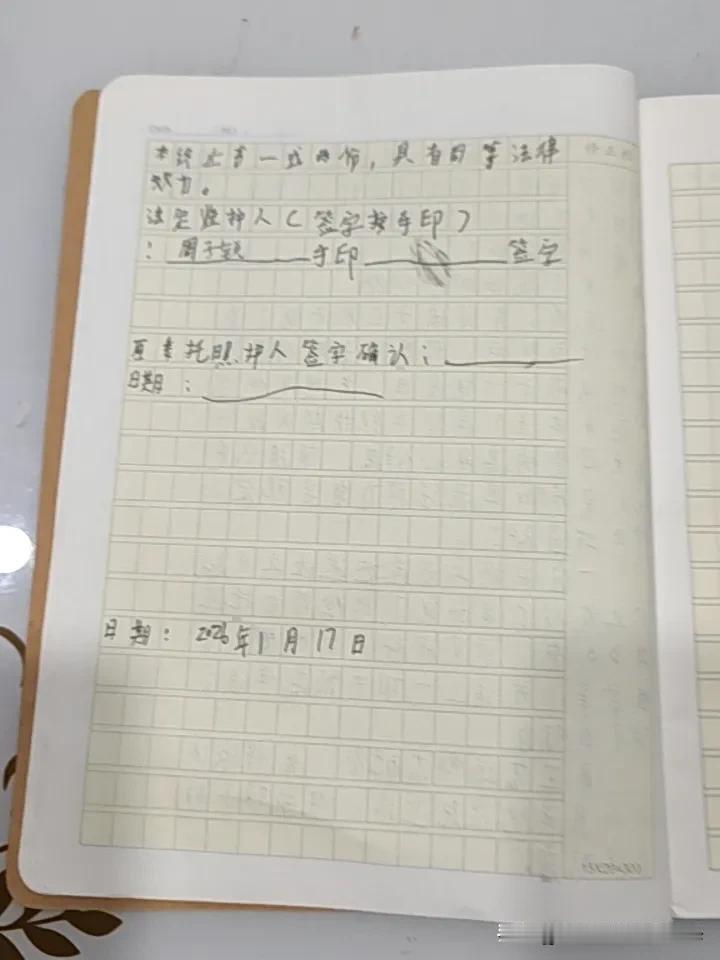 本终止书一式两份，具有同等法律
效力。
法定监护人（签字按手印）
：周子颖 手印 签字
原委托照护人签字确认：
日期：
日期：2026年1月17日